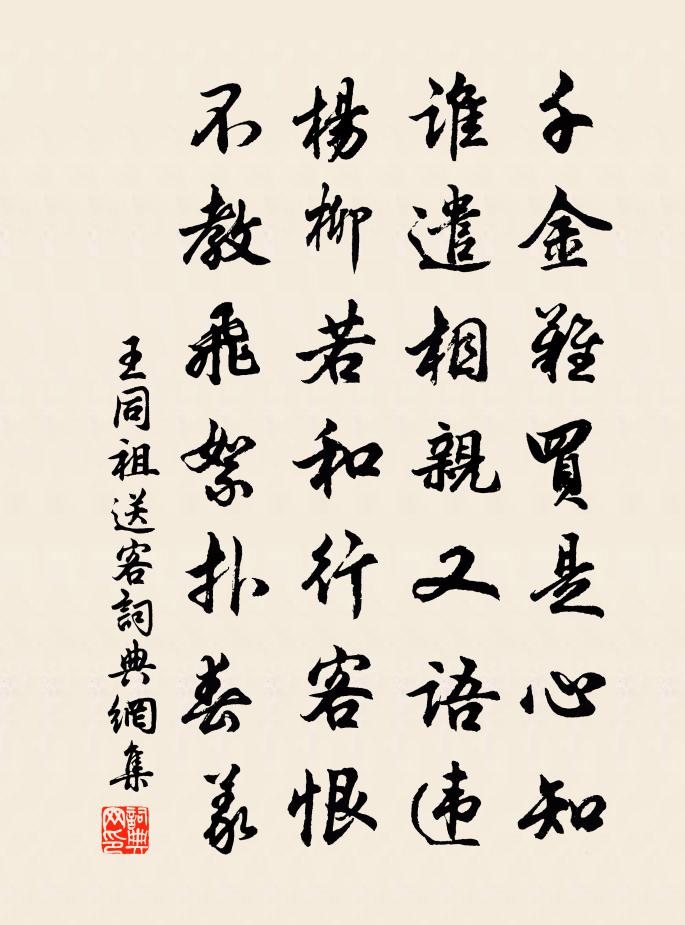 千金難買是心知
誰遣相親又語违
楊柳若和行客恨
不教飛絮扑春
王同祖送客詞典網集
詞典网印